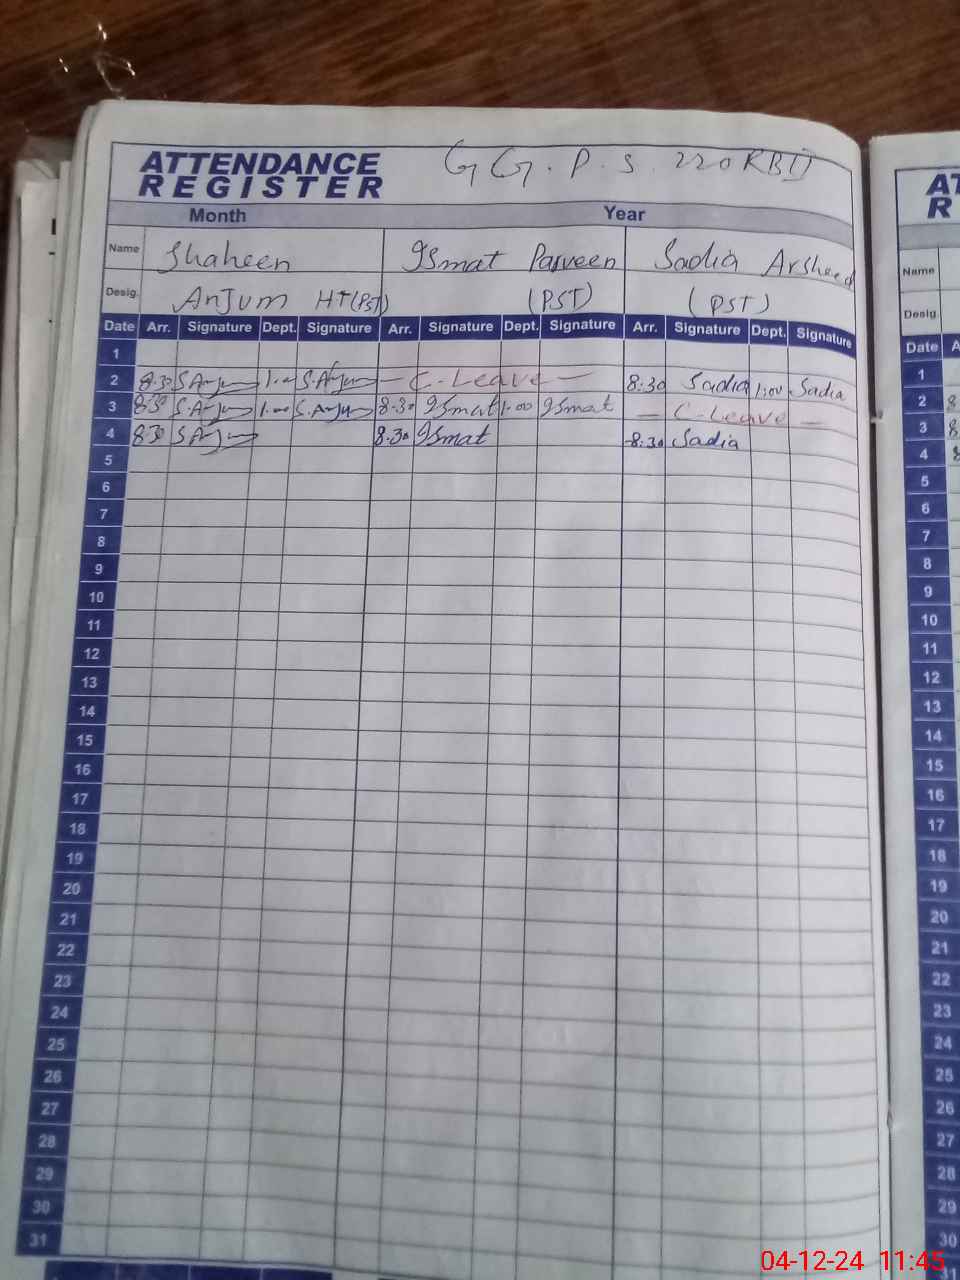 ATTENDANCE REGISTER
G G. P. S. 220 RB II
Month Year
Name Shaheen Ismat Parveen Sadia Arsheed
Desig. Anjum HT(PST) (PST) (PST)
Date Arr. Signature Dept. Signature Arr. Signature Dept. Signature Arr. Signature Dept. Signature
1
2 8:30 S.Anjum 1:00 S.Anjum — C.Leave — 8:30 Sadia 1:00 Sadia
3 8:30 S.Anjum 1:00 S.Anjum 8:30 Ismat 1:00 Ismat — C-Leave —
4 8:30 S.Anjum 8:30 Ismat 8:30 Sadia
5
6
7
8
9
10
11
12
13
14
15
16
17
18
19
20
21
22
23
24
25
26
27
28
29
30
31
AT
R
Name
Desig.
Date A
1
2 8
3 8
4 8
5
6
7
8
9
10
11
12
13
14
15
16
17
18
19
20
21
22
23
24
25
26
27
28
29
30
31
04-12-24 11:45